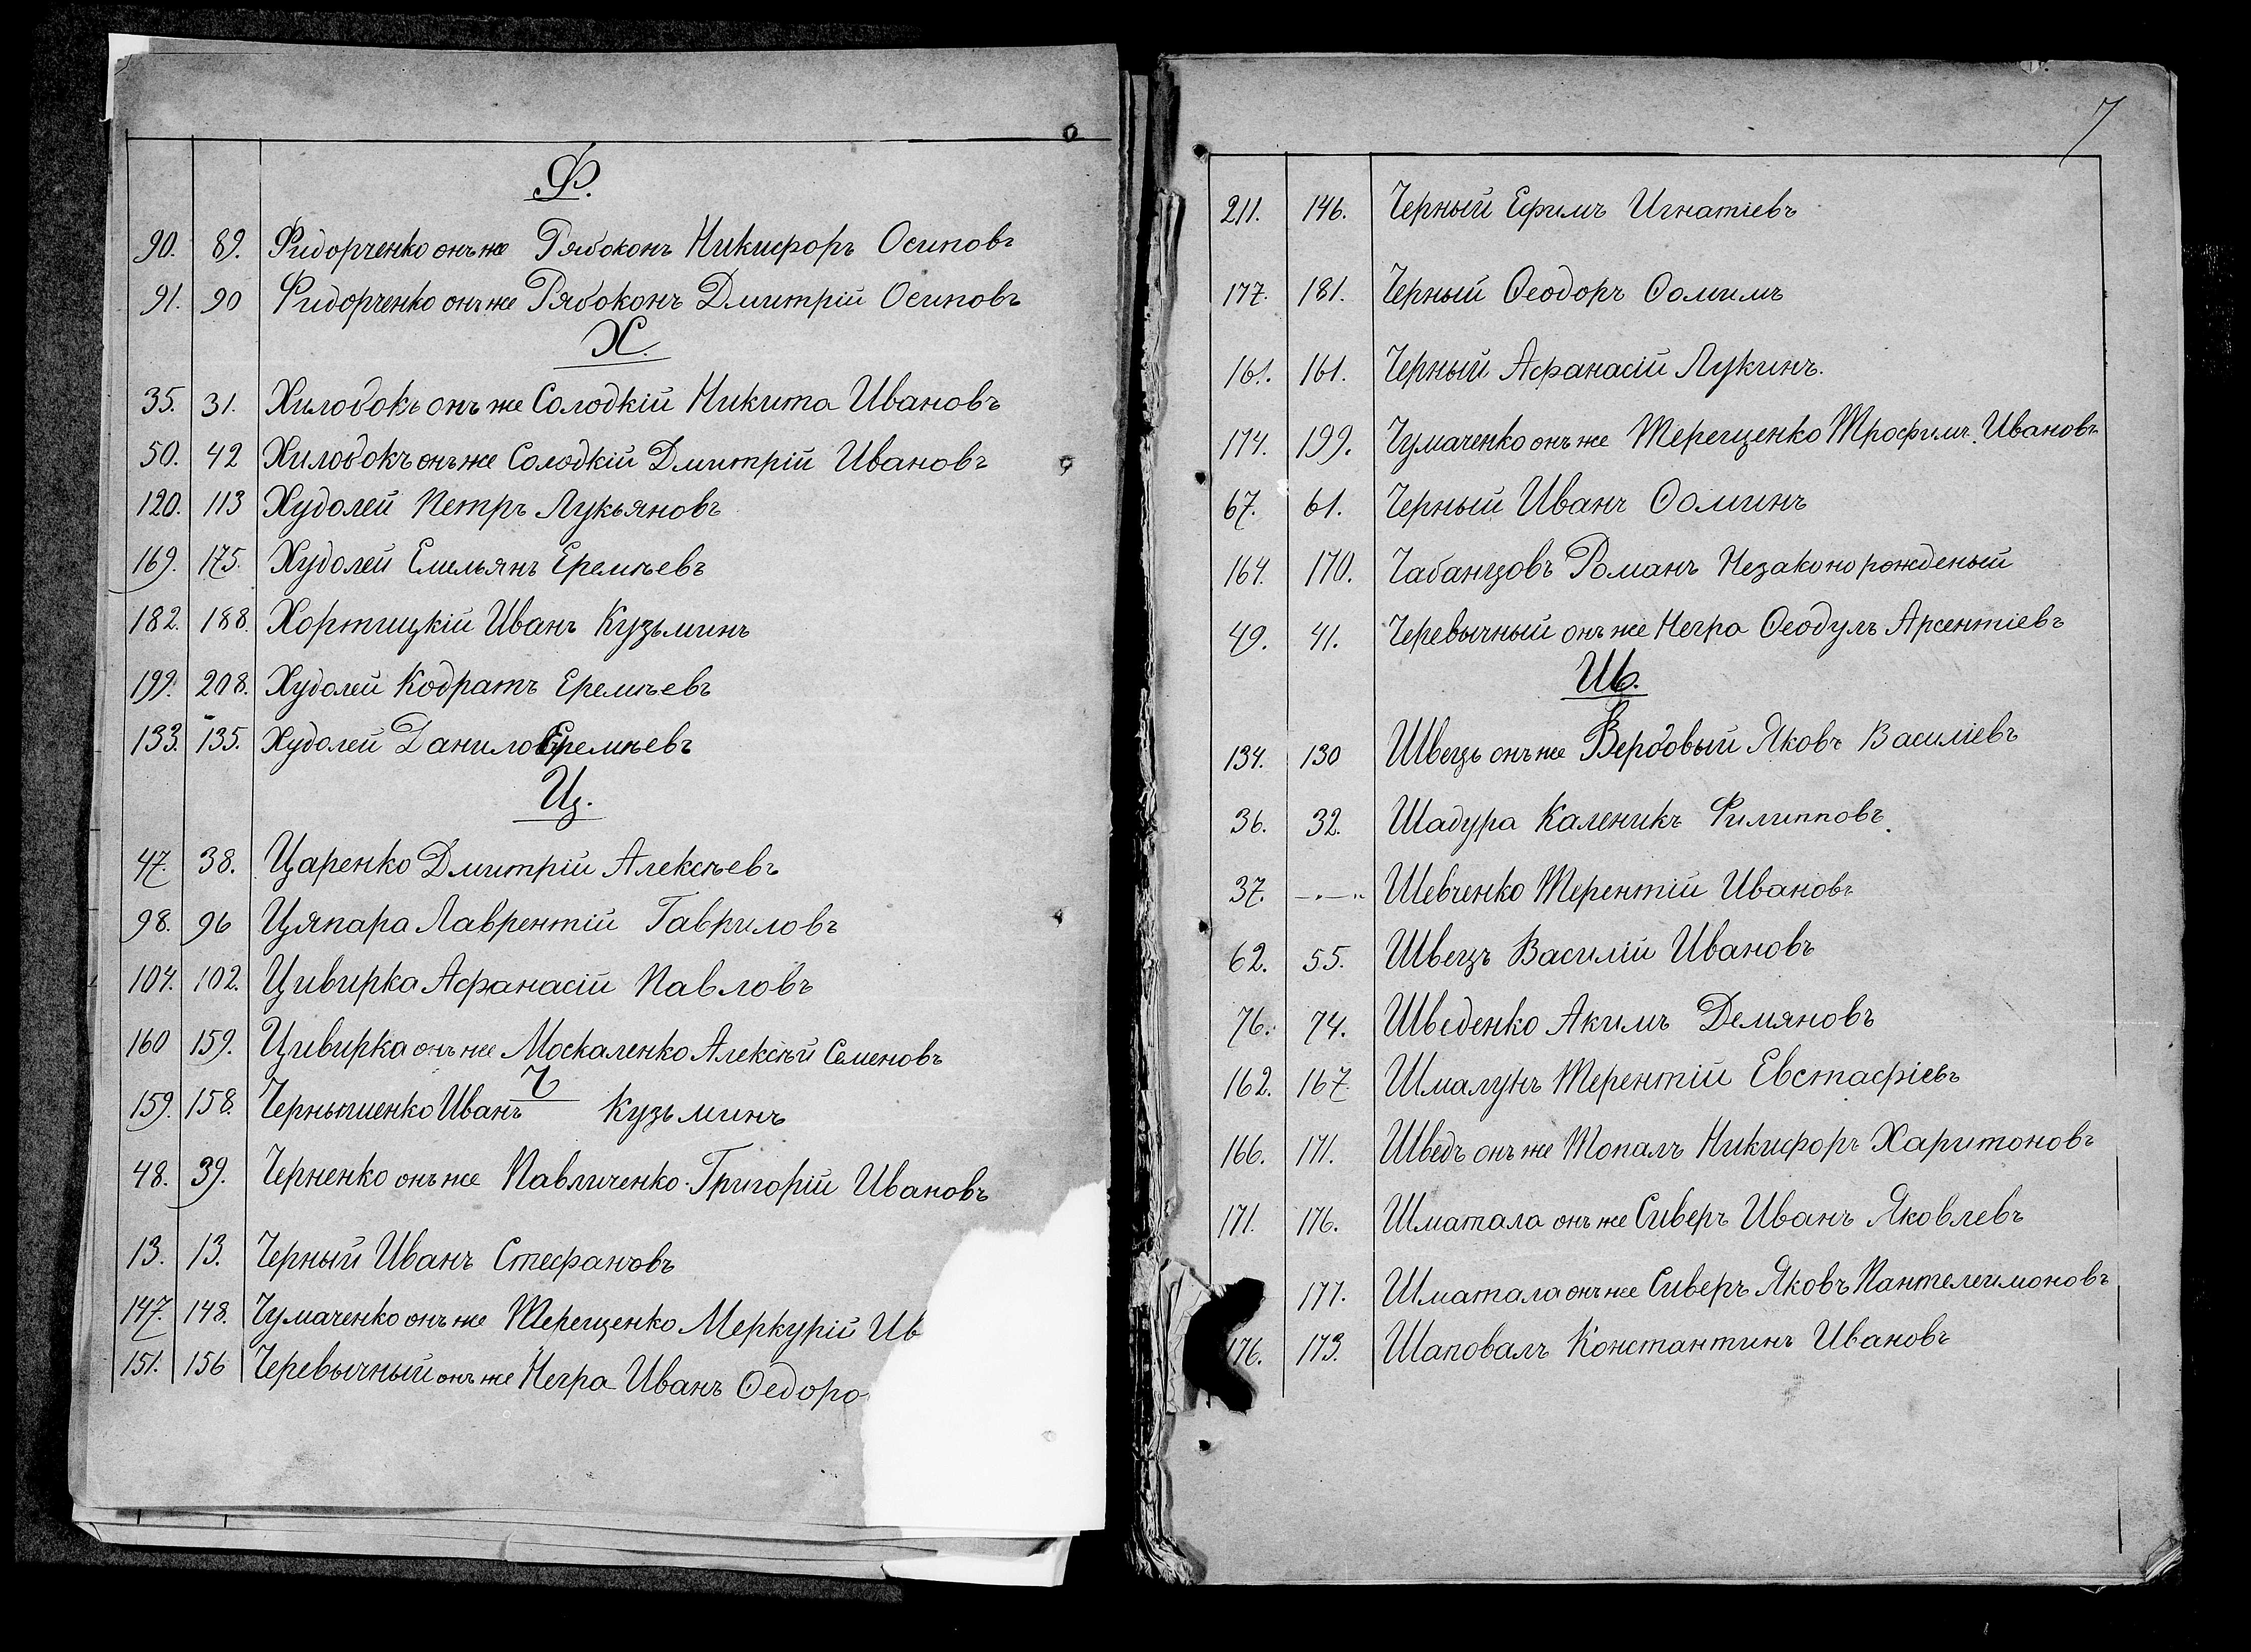 Ф.
90. 89. Фидорченко онъ же Рябоконъ Никифоръ Осиповъ
91. 90 Фидорченко онъ же Рябоконъ Дмитрій Осиповъ
Х.
35. 31. Хилобокъ онъ же Солодкій Никита Ивановъ
50. 42 Хилобокъ онъ же Солодкій Дмитрій Ивановъ
120. 113 Худолей Петръ Лукьяновъ
169. 175. Худолей Емельянъ Еремѣевъ
182. 188. Хортицкій Иванъ Кузьминъ
199. 208. Худолей Кодратъ Еремѣевъ
133. 135. Худолей Данило Еремѣевъ
Ц.
47. 38. Царенко Дмитрій Алексѣевъ
98. 96 Цяпара Лаврентій Гавриловъ
104. 102. Цивирка Афанасій Павловъ
160 159. Цивирка онъ же Москаленко Алексѣй Семеновъ
Ч
159. 158. Чернышенко Иванъ Кузьминъ
48. 39. Черненко онъ же Павличенко Григорій Ивановъ
13. 13. Черный Иванъ Стефановъ
147. 148. Чумаченко онъ же Терещенко Меркурій Ив
151. 156 Черевычный онъ же Негра Иванъ Ѳедоро
7
211. 146. Черный Ефимъ Игнатіевъ
177. 181. Черный Ѳеодоръ Ѳомимъ
161. 161. Черный Афанасій Лукинъ.
174. 199. Чумаченко онъ же Терещенко Трофимъ Ивановъ
67. 61. Черный Иванъ Ѳоминъ
164. 170. Чабанцовъ Романъ Незаконорожденый
49. 41. Черевычный онъ же Негра Ѳеодулъ Арсентіевъ
Ш.
134. 130 Швець онъ же Вербовый Яковъ Василіевъ
36. 32. Шадура Каленикъ Филипповъ
37. —„— Шевченко Терентій Ивановъ
62. 55. Швецъ Василій Ивановъ
76. 74. Шведенко Акимъ Демяновъ
162. 167. Шмалунъ Терентій Евстафіевъ
166. 171. Шведъ онъ же Топалъ Никифоръ Харитоновъ
171. 176. Шматала онъ же Сиверъ Иванъ Яковлевъ
177. Шматала онъ же Сиверъ Яковъ Пантелеимоновъ
176. 173. Шаповалъ Константинъ Ивановъ